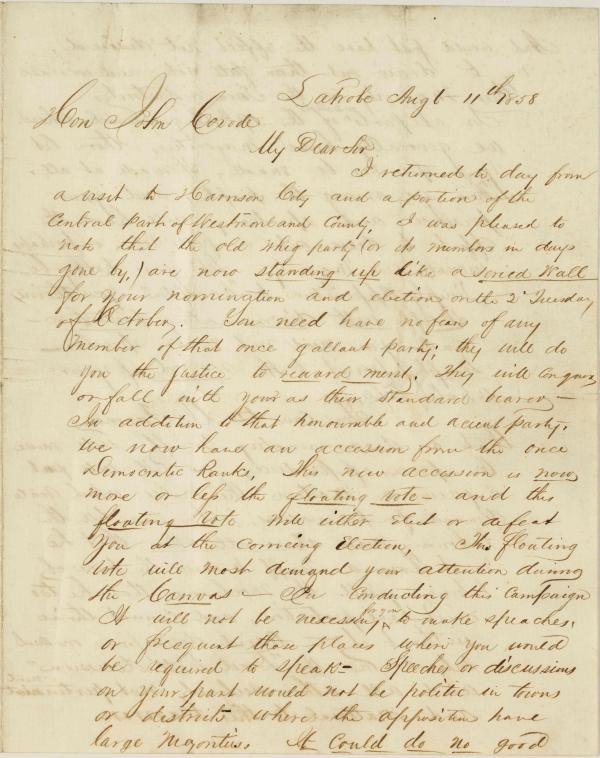 Latrobe Augt 11th 1858
Hon John Covode
My Dear Sir
I returned to day from
a visit to Harrison City and a portion of the
Central part of Westmorland County, I was pleased to
note that the old Whig party (or its members in days
gone by,) are now standing up like a Solid Wall
for your nomination and election on the 2d Tuesday
of October. You need have no fears of any
member of that once gallant party; they will do
you the justice to reward merit. They will conquer
or fall with you as their standard bearer —
In addition to that honourable and party,
we now have an accession from the once
Democratic Ranks. This new accession is now
more or less the floating vote — and this
floating vote will either Elect or defeat
You at the comeing Election, This floating
vote will most demand your attention during
the Canvas — In conducting this Campaign
It will not be necessary for you to make speaches,
or freequent those places where you would
be required to speak — Speeches or discussions
on your part would not be politic in towns
or districts where the opposition have
large Majorities. It Could do no good